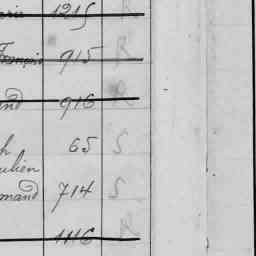 1215 R
François 915 R
and 916 R
h 65 S
ulien
mand 714 S
1116 R